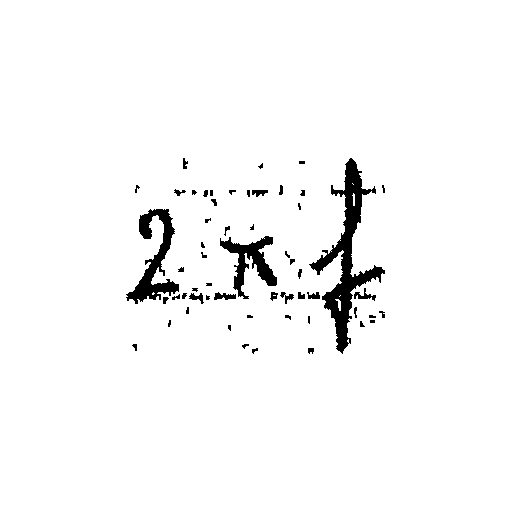 2πf